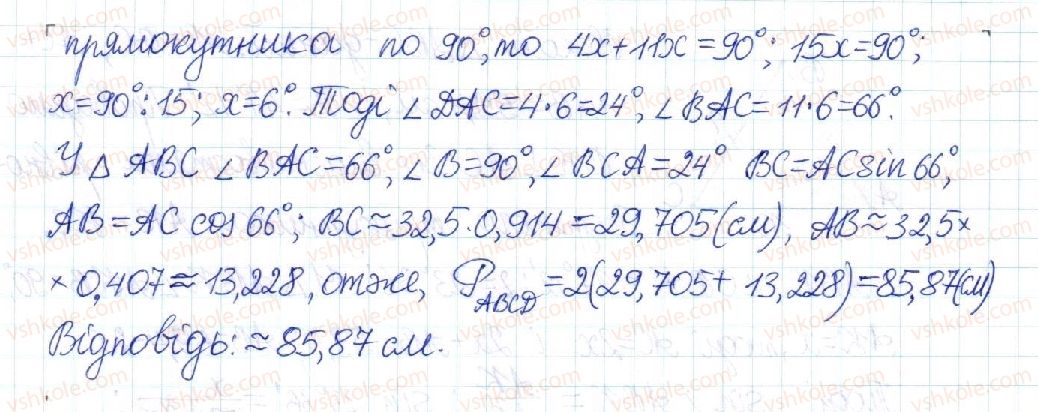 прямокутника по 90°, то 4x+11x=90°; 15x=90°;
x=90°:15; x=6°. Тоді ∠DAC=4·6=24°, ∠BAC=11·6=66°.
У △ABC ∠BAC=66°, ∠B=90°, ∠BCA=24° BC=AC sin 66°,
AB=AC cos 66°; BC≈32,5·0,914=29,705(см), AB≈32,5×
×0,407≈13,228, отже, P_ABCD=2(29,705+13,228)=85,87(см)
Відповідь: ≈85,87 см.